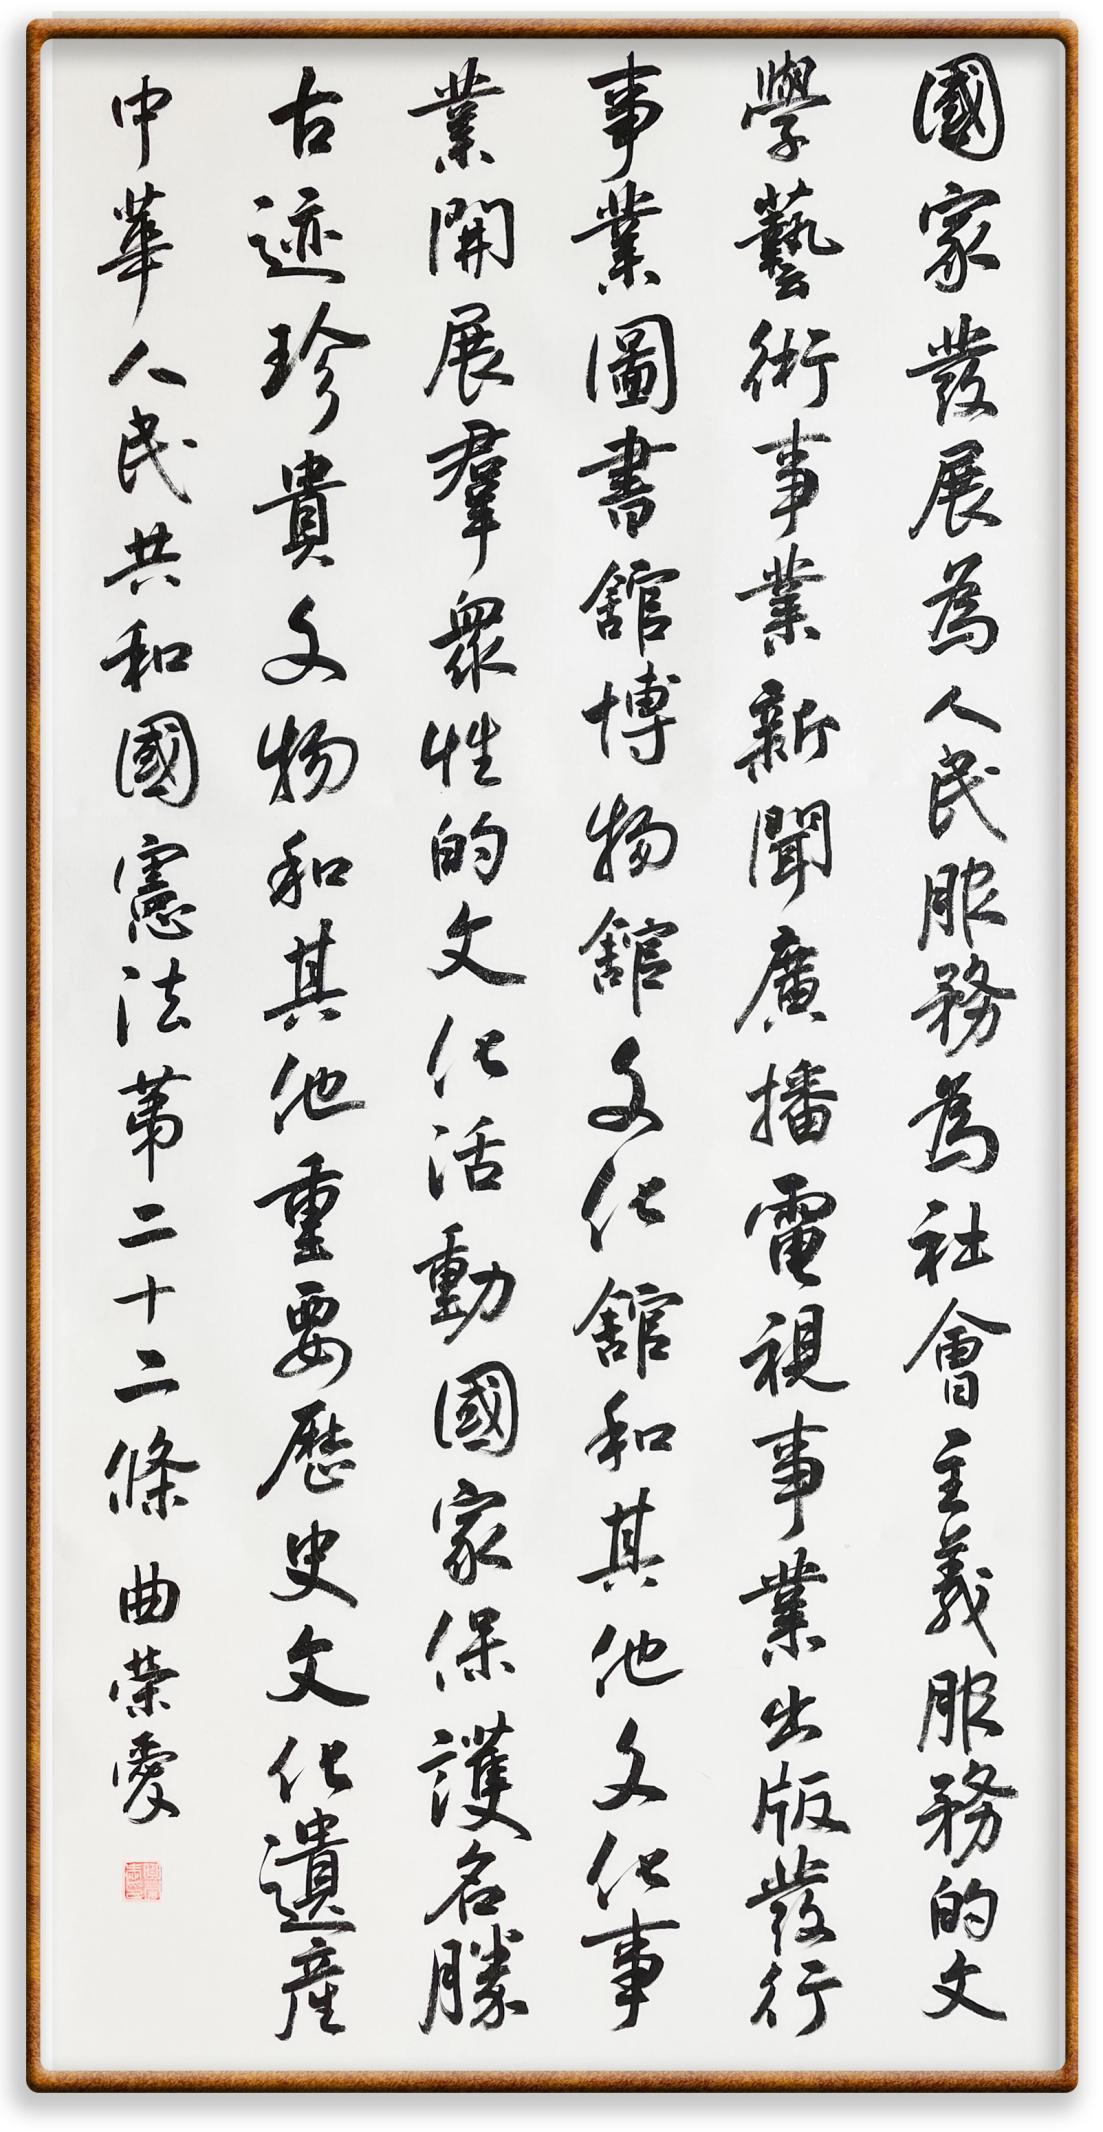 國家發展為人民服務為社會主義服務的文
學藝術事業新聞廣播電視事業出版發行
事業圖書舘博物舘文化舘和其他文化事
業開展羣衆性的文化活動國家保護名勝
古迹珍貴文物和其他重要歷史文化遺産
中華人民共和國憲法第二十二條 曲榮愛